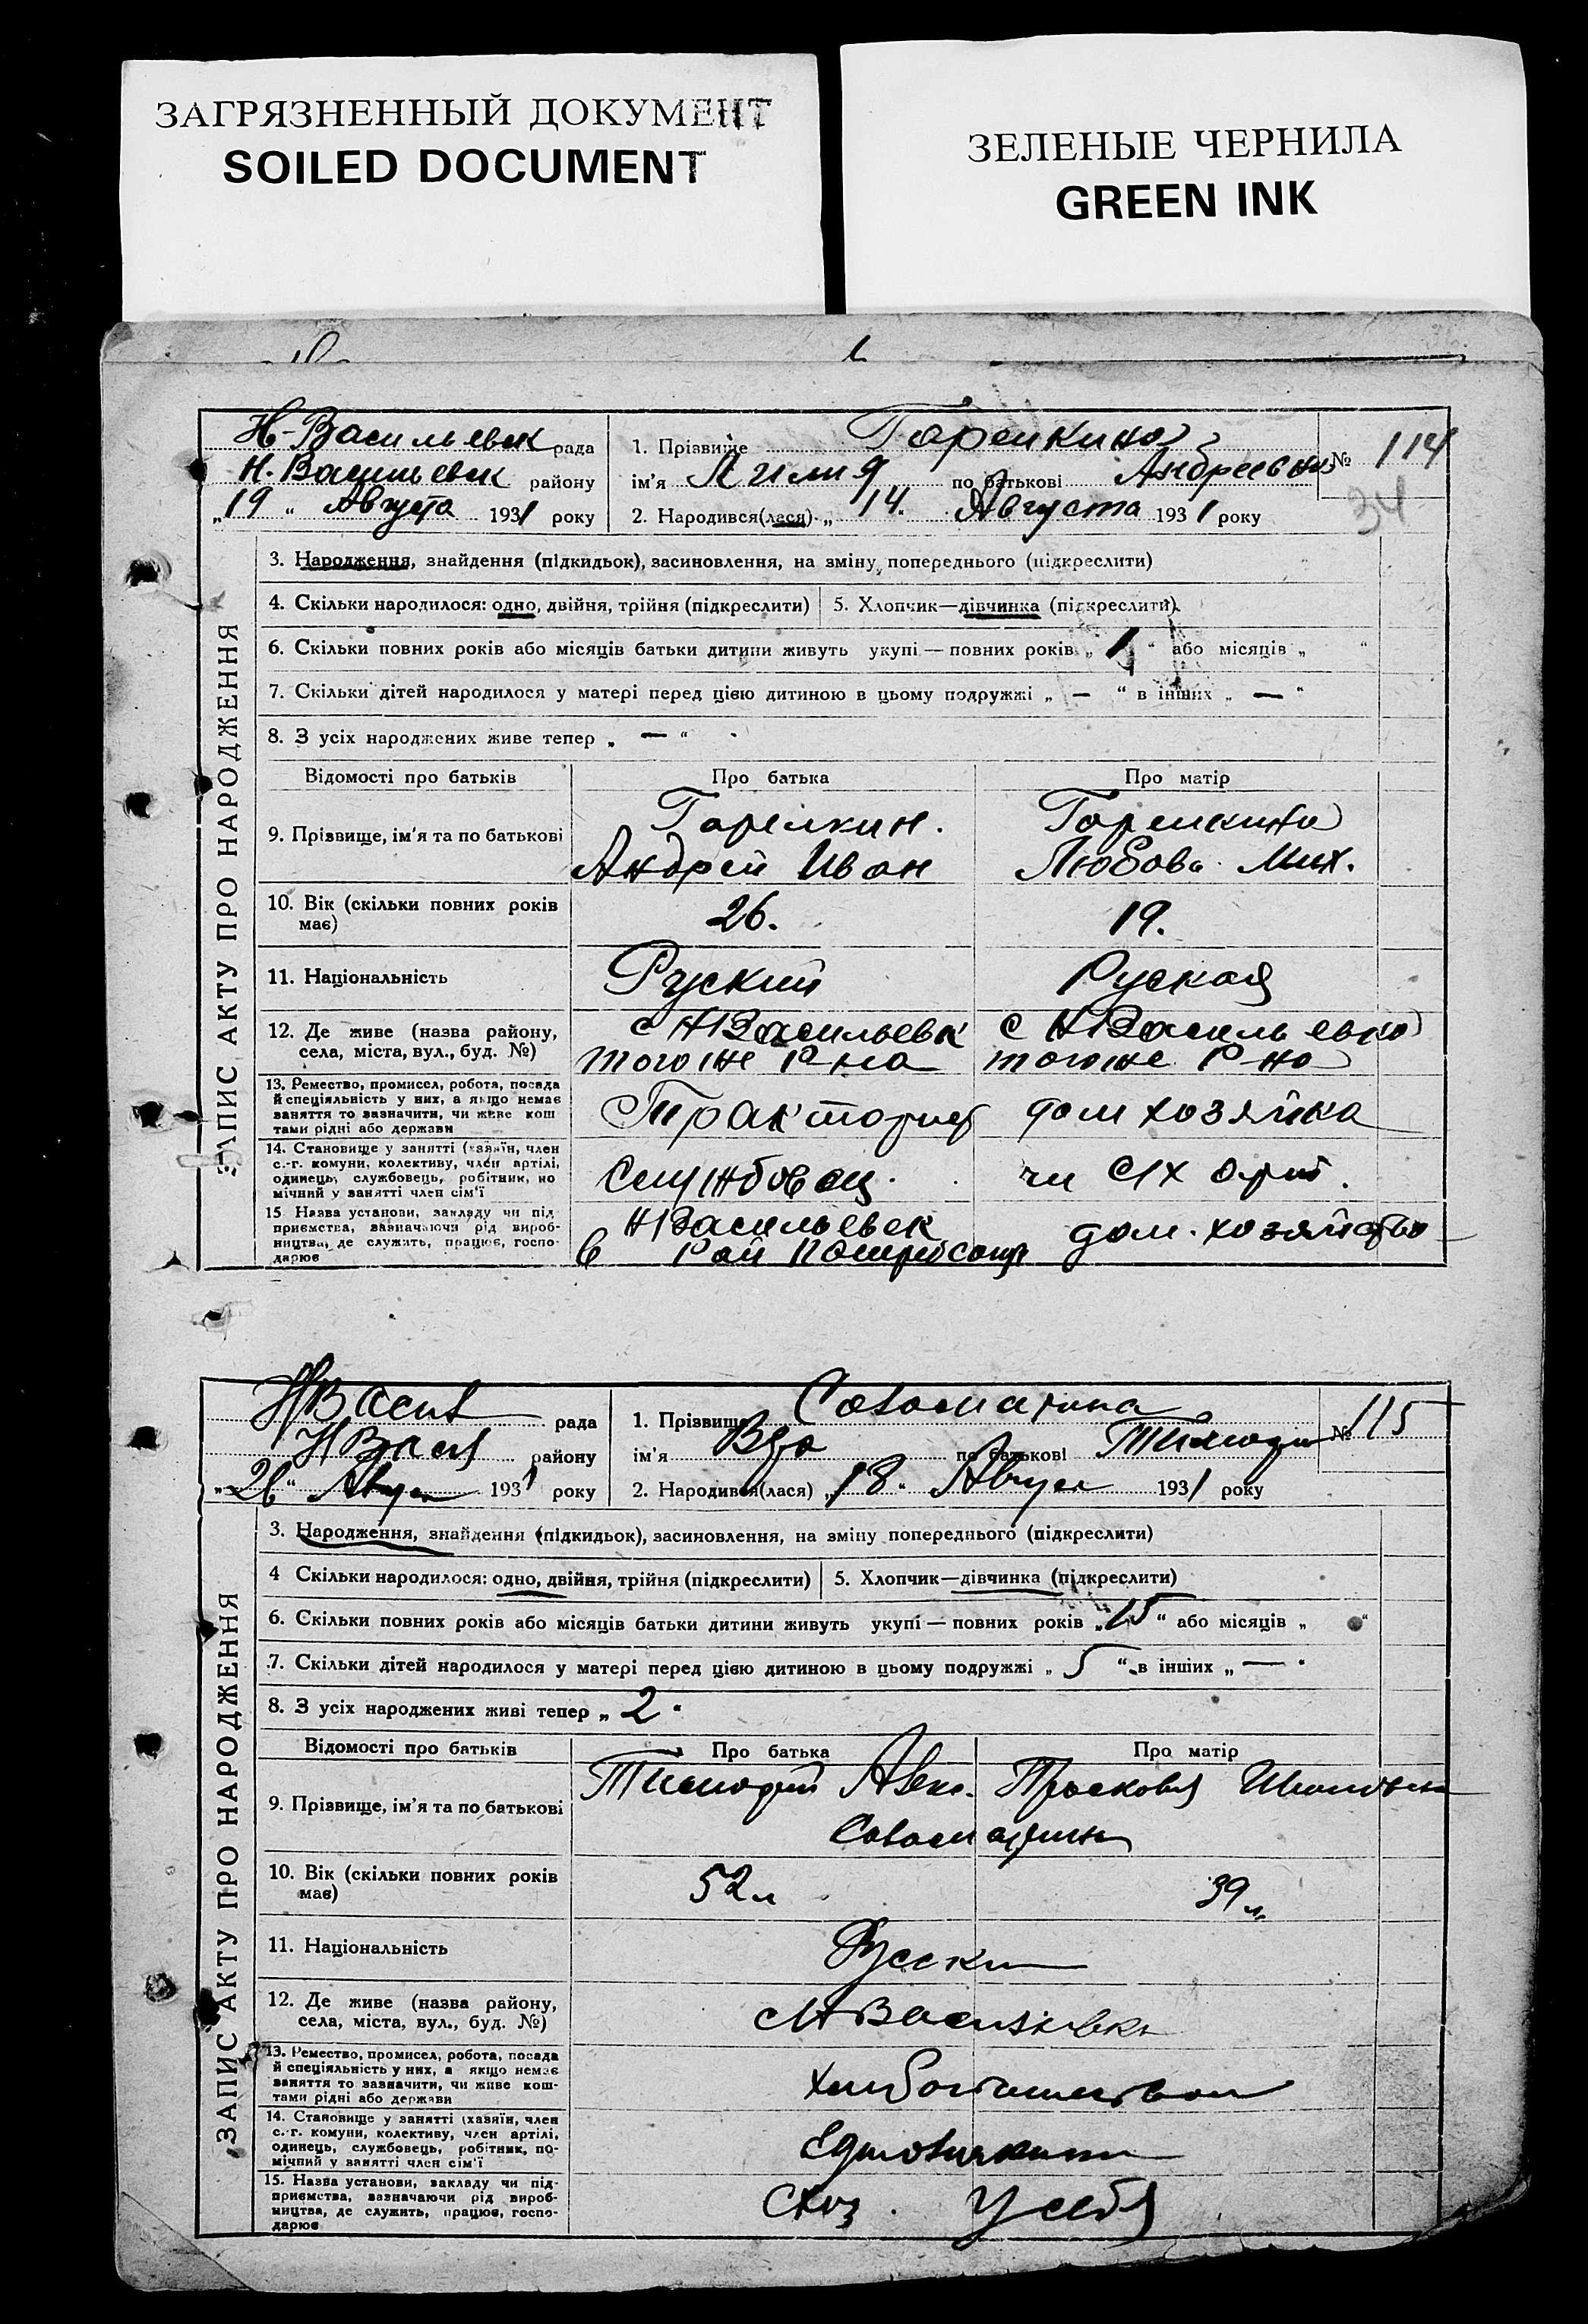 ЗАГРЯЗНЕННЫЙ ДОКУМЕНТ
SOILED DOCUMENT
ЗЕЛЕНЫЕ ЧЕРНИЛА
GREEN INK
ЗАПИС АКТУ ПРО НАРОДЖЕННЯ
Н-Васильевск рада
Н. Васильевск району
„19“ Августа 1931 року
1. Прізвище Горелкина
ім'я Лилия по батькові Андреевна
2. Народився(лася) „14“ Августа 1931 року
№ 114
34
3. Народження, знайдення (підкидьок), засиновлення, на зміну попереднього (підкреслити)
4. Скільки народилося: одно, двійня, трійня (підкреслити) 5. Хлопчик—дівчинка (підкреслити)
6. Скільки повних років або місяців батьки дитини живуть укупі — повних років „1“ або місяців „ “
7. Скільки дітей народилося у матері перед цією дитиною в цьому подружжі „ — “ в інших „ — “
8. З усіх народжених живе тепер „ — “
Відомості про батьків Про батька Про матір
9. Прізвище, ім'я та по батькові
Горелкин. Горелкина
Андрей Иван Любовь Мих.
10. Вік (скільки повних років
має)
26. 19.
11. Національність Руский Руская
12. Де живе (назва району,
села, міста, вул., буд. №)
с НВасильевк с НВасильевка
тогоже Р-на тогоже Р-на
13. Ремество, промисел, робота, посада
й спеціяльність у них, а якщо немає
заняття то зазначити, чи живе кош
тами рідні або держави
Тракторист дом хозяйка
14. Становище у занятті (хазяїн, член
с.-г. комуни, колективу, член артілі,
одинець, службовець, робітник, по
мічний у занятті член сім'ї
Службовец. чл С/х арт.
15 Назва установи, закладу чи під
приємства, зазначаючи рід вироб-
ництва, де служить, працює, госпо-
дарює
НВасильевск дом. хозяйство
в Рай
ЗАПИС АКТУ ПРО НАРОДЖЕННЯ
НВасил рада
НВасил району
„26“ Август 1931 року
1. Прізвище
ім'я Вера по батькові Тимофе
2. Народився(лася) „18“ Август 1931 року
№ 115
3. Народження, знайдення (підкидьок), засиновлення, на зміну попереднього (підкреслити)
4 Скільки народилося: одно, двійня, трійня (підкреслити) 5. Хлопчик—дівчинка (підкреслити)
6. Скільки повних років або місяців батьки дитини живуть укупі — повних років „15“ або місяців „ “
7. Скільки дітей народилося у матері перед цією дитиною в цьому подружжі „ 5 “ в інших „ — “
8. З усіх народжених живі тепер „ 2 “
Відомості про батьків Про батька Про матір
9. Прізвище, ім'я та по батькові
Тимофей Алек. Прасковя
10. Вік (скільки повних років
має)
52 л 39 л.
11. Національність Русски
12. Де живе (назва району,
села, міста, вул., буд. №)
с НВасильевка
13. Ремество, промисел, робота, посада
й спеціяльність у них, а якщо немає
заняття то зазначити, чи живе кош-
тами рідні або держави
14. Становище у занятті (хазяїн, член
с.-г. комуни, колективу, член артілі,
одинець, службовець, робітник, по-
мічний у занятті член сім'ї
15. Назва установи, закладу чи під-
приємства, зазначаючи рід вироб-
ництва, де служить, працює, госпо-
дарює
У себя